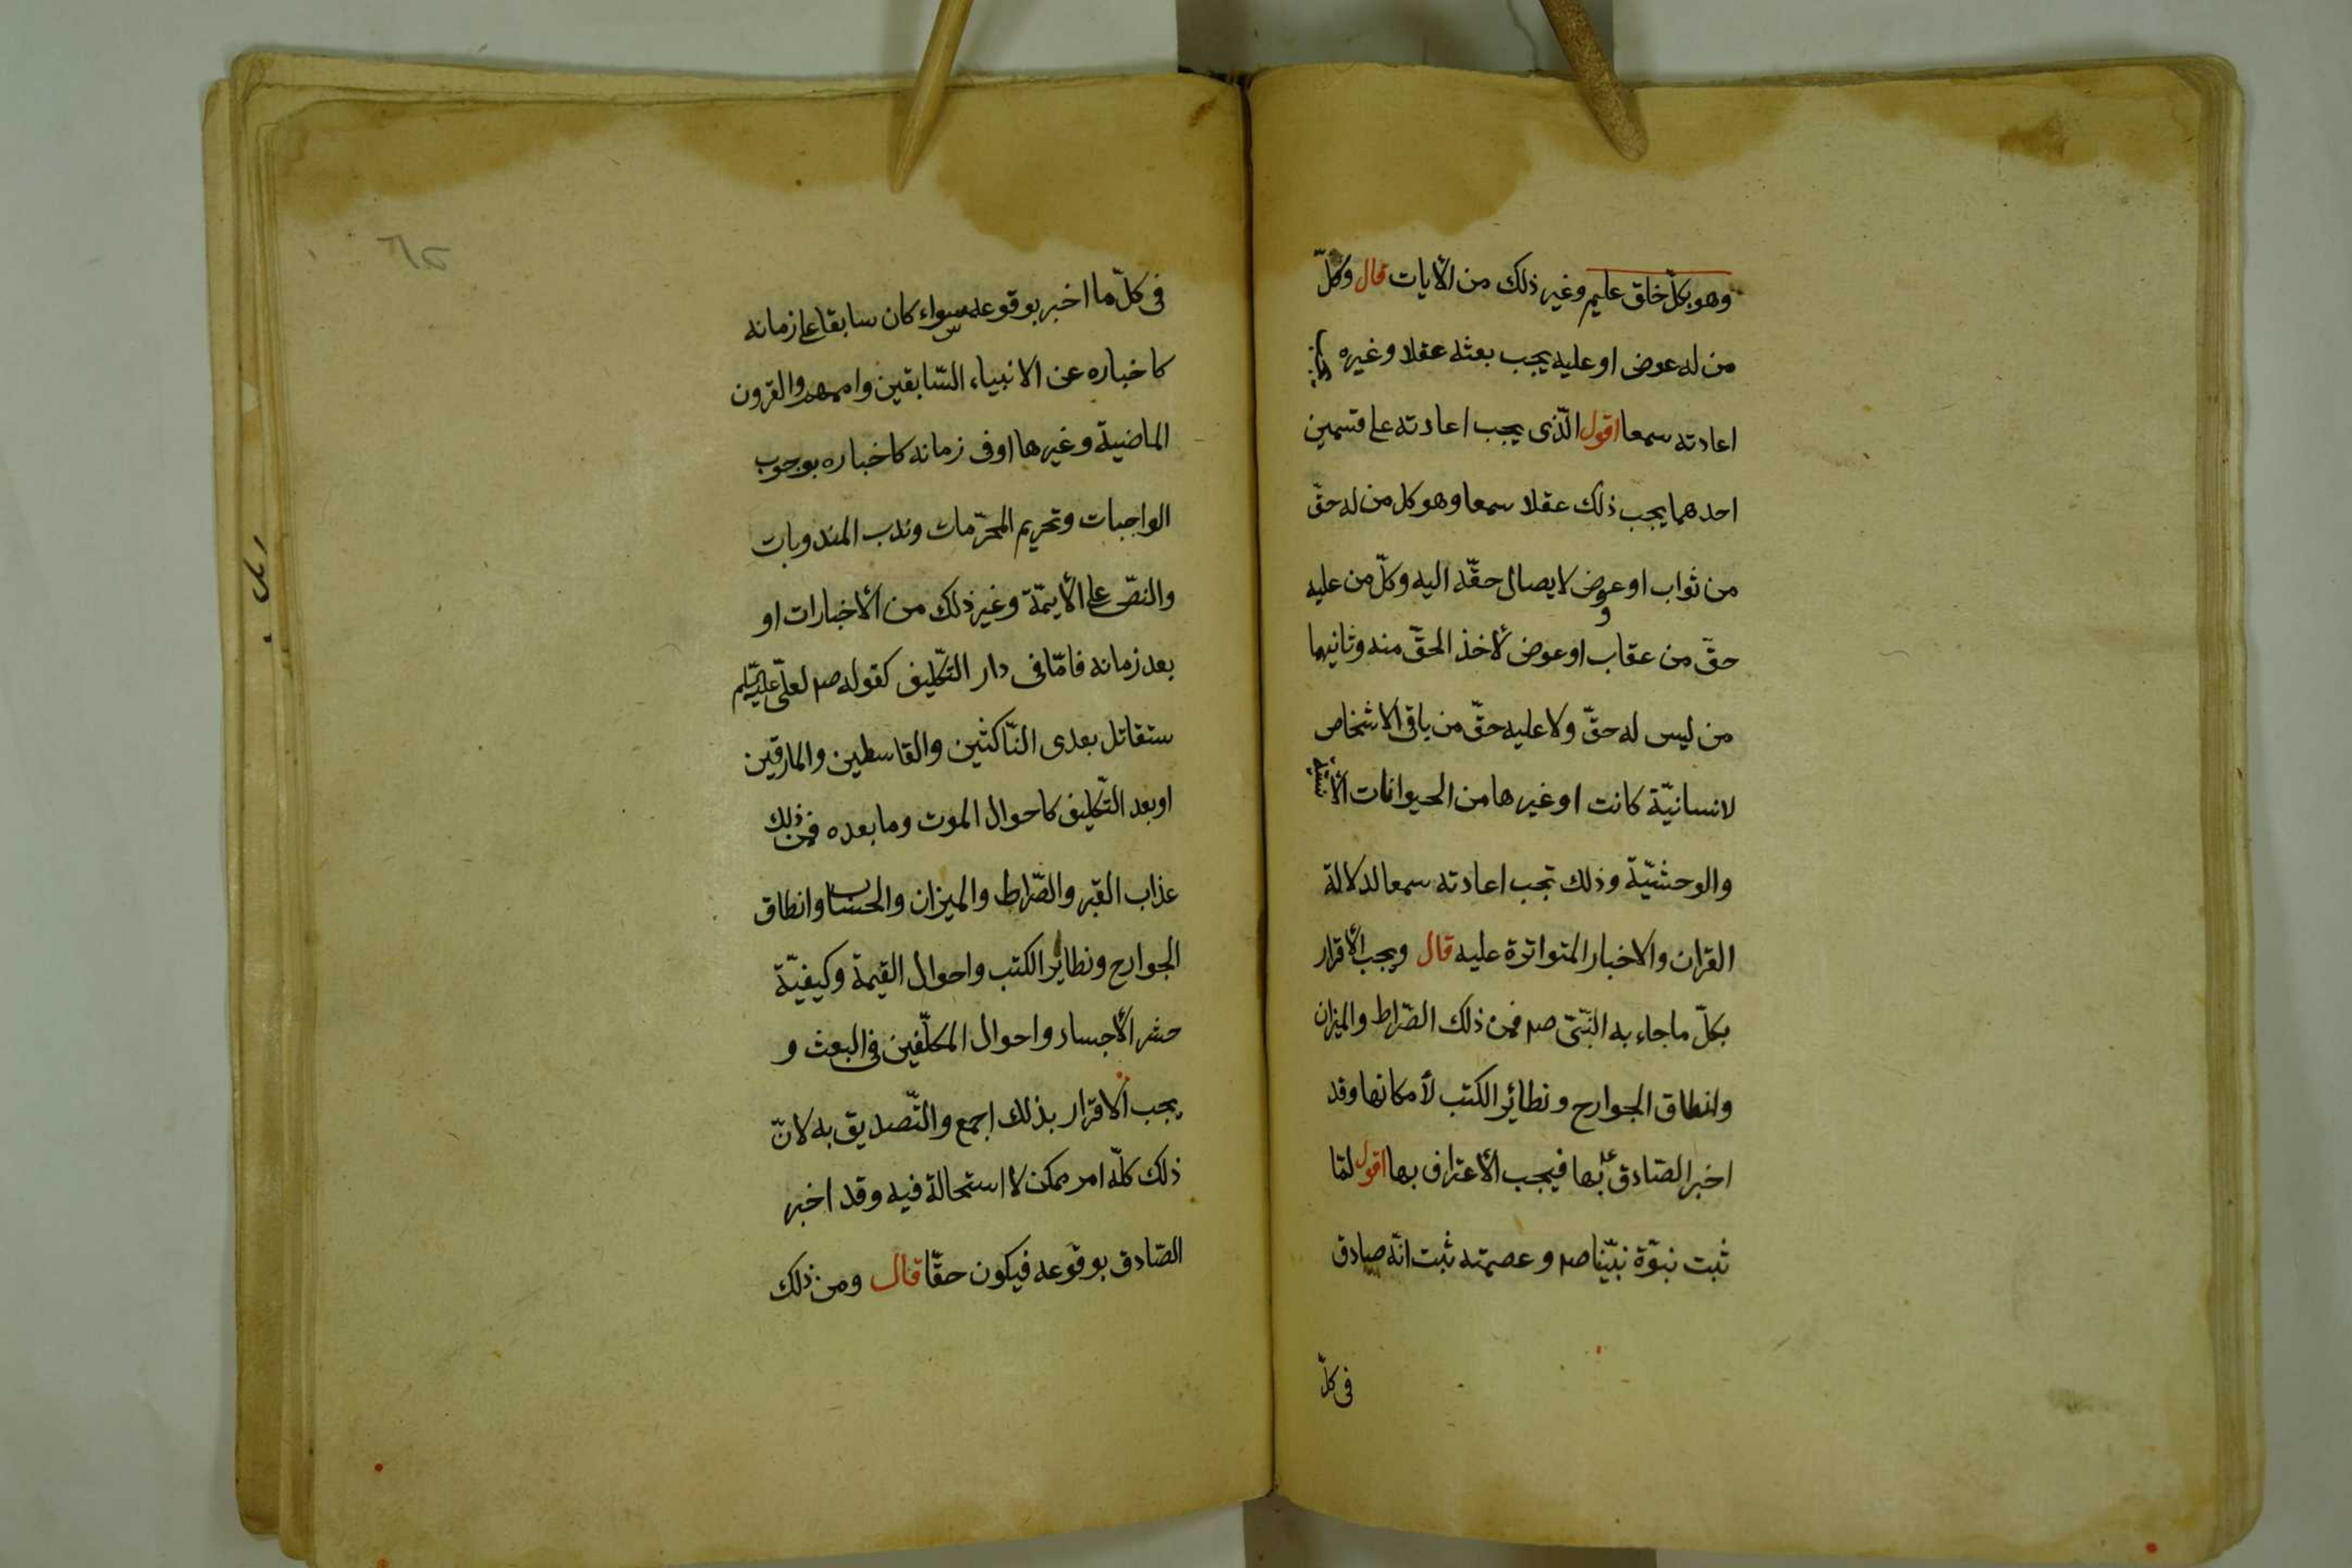 وهو بكلّ خلق عليم وغير ذلك من الأيات قال وكلّ
من له عوض او عليه يجب بعثه عقلا وغيره يجب
اعادته سمعا اقول الّذى يجب اعادته على قسمين
احدهما يجب ذلك عقلا سمعا وهو كل من له حقّ
من ثواب او عوض لايصال حقّه اليه وكلّ من عليه
و
حقّ من عقاب او عوض لأخذ الحقّ منه وثانيهما
من ليس له حقّ ولا عليه حقّ من باقى الاشخاص
لانسانيّة كانت او غيرها من الحيوانات الأنسيّة
والوحشيّة وذلك تجب اعادته سمعا لدلالة
القران والاخبار المتواترة عليه قال ويجب الأقرار
بكلّ ما جاء به النّبىّ صم فمن ذلك الصّراط والميزان
وانطاق الجوارح وتطائر الكتب لأمكانها وقد
اخبر الصّادق ع بها فيجب الأعتراف بها اقول لمّا
ثبت نبوّة نبيّنا صم وعصمته ثبت انّه صادق
فى كلّ
فى كلّ ما اخبر بوقوعه سواء كان سابقا على زمانه
كاخباره عن الانبياء السّابقين واممهم والقرون
الماضية وغيرها او فى زمانه كاخباره بوجوب
الواجبات وتحريم المحرّمات وندب المندوبات
والنصّ على الأيمّة وغير ذلك من الأخبارات او
بعد زمانه فامّا فى دار التّكليف كقوله صم لعلىّ عليه السّلم
ستقاتل بعدى النّاكثين والقاسطين والمارقين
او بعد التّكليف كاحوال الموت وما بعده فمن ذلك
عذاب القبر والصّراط والميزان والحساب وانطاق
الجوارح وتطائر الكتب واحوال القيمة وكيفيّة
حشر الأجساد واحوال المكلّفين فى البعث و
يجب الاقرار بذلك اجمع والتّصديق به لانّ
ذلك كلّه امر ممكن لا استحالة فيه وقد اخبر
الصّادق بوقوعه فيكون حقّا قال ومن ذلك